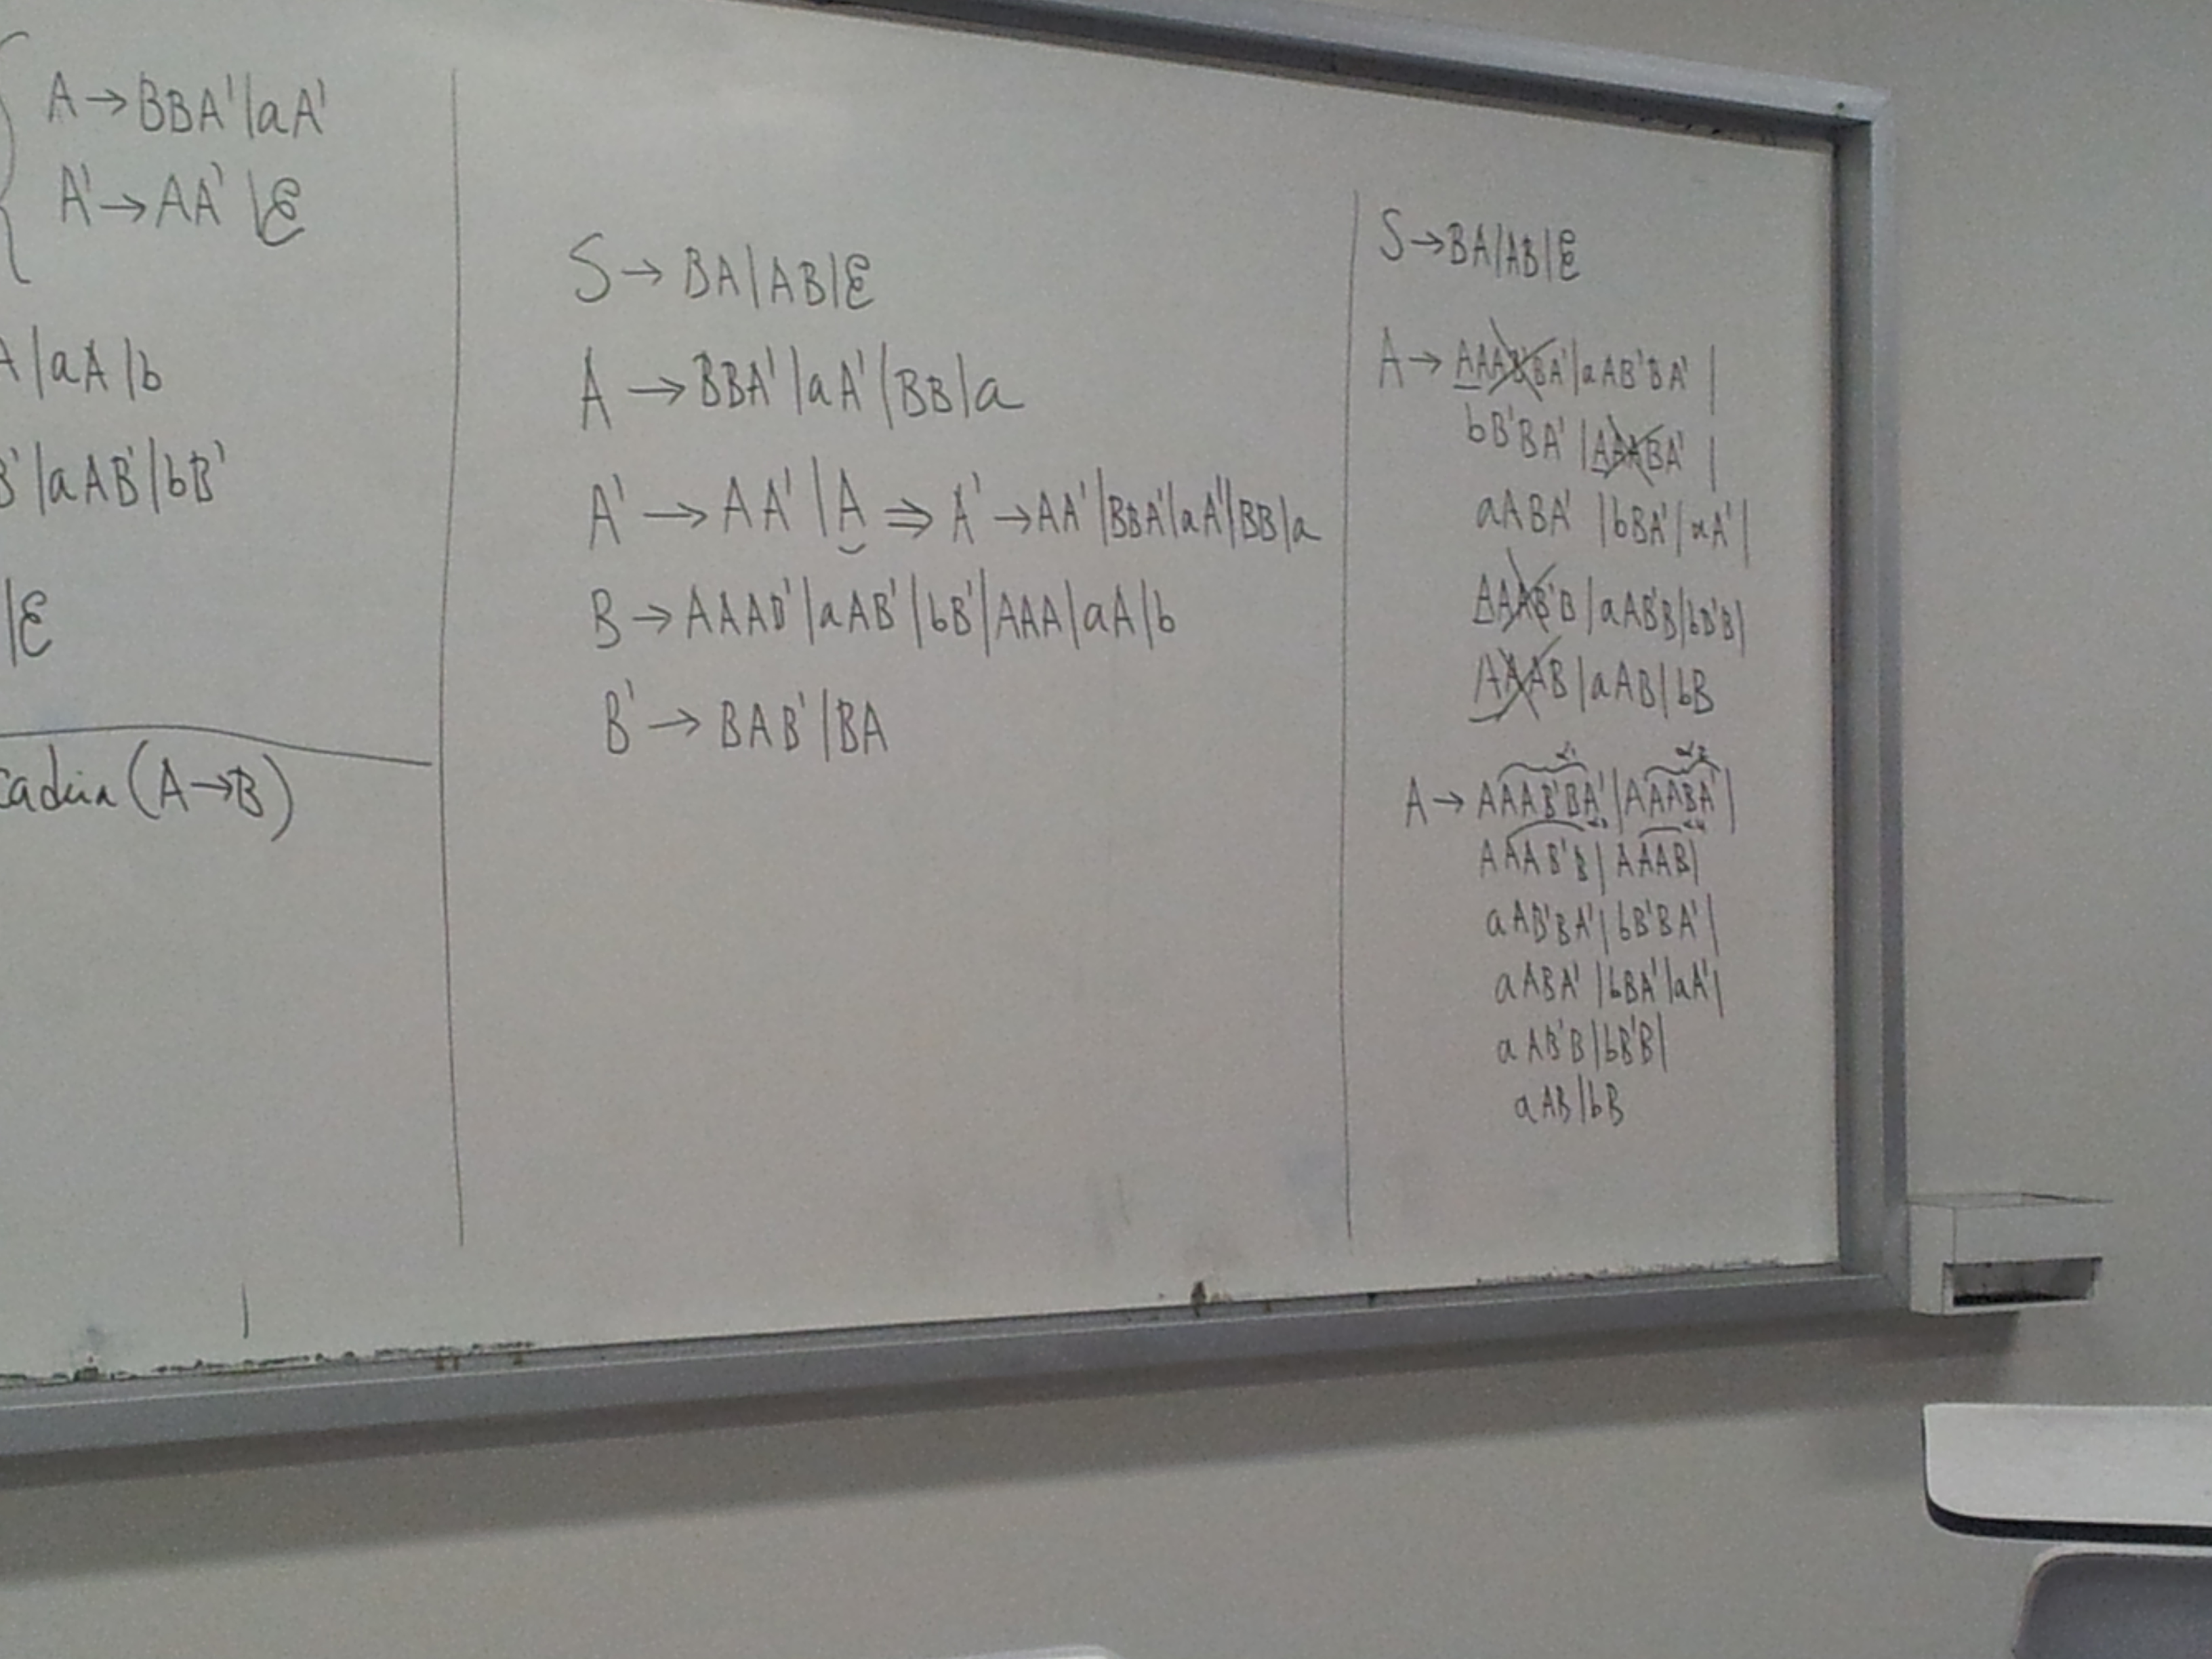 A → BBA' | aA'
A' → AA' | ε
A | aA | b
B' | aAB' | bB'
| ε
(A → B)
S → BA | AB | ε
A → BBA' | aA' | BB | a
A' → AA' | A ⇒ A' → AA' | BBA' | aA' | BB | a
B → AAAB' | aAB' | bB' | AAA | aA | b
B' → BAB' | BA
S → BA | AB | ε
A → AAAB'BA' | aAB'BA' |
bB'BA' | AAABA' |
aABA' | bBA' | aA' |
AAAB'B | aAB'B | bB'B |
AAAB | aAB | bB
α1 α2
A → AAAB'BA' | AAABA' |
α3 α4
AAAB'B | AAAB |
aAB'BA' | bB'BA' |
aABA' | bBA' | aA' |
aAB'B | bB'B |
aAB | bB